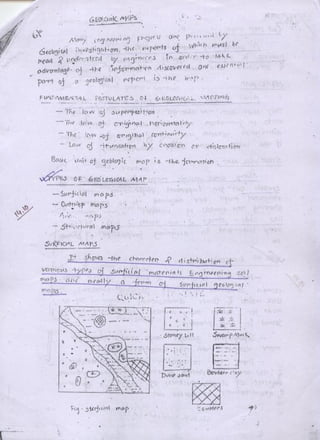 GEOLOGIC MAPS
Many engineering projects are preceded by
Geological investigation, the reports of which must be
read & understood by engineers In order to take
advantage of the information discovered. An essential
part of a geological report is the map.
FUNDAMENTAL POSTULATES OF GEOLOGICAL MAPPING
- The law of superposition
- The law of original horizontality
- The law of original continuity
- Law of truncation by erosion or dislocation
Basic unit of geologic map is the formation
TYPES OF GEOLOGICAL MAP
- Surficial maps
- Outcrop maps
- maps
- Structural maps
14.10
SURFICIAL MAPS
It shows the character & distribution of
various types of surficial materials Engineering soil
maps are really a form of surficial geological
maps
Stoney till
Swamp Muck
Dune sand
Bouldery clay
Fig - Surficial map